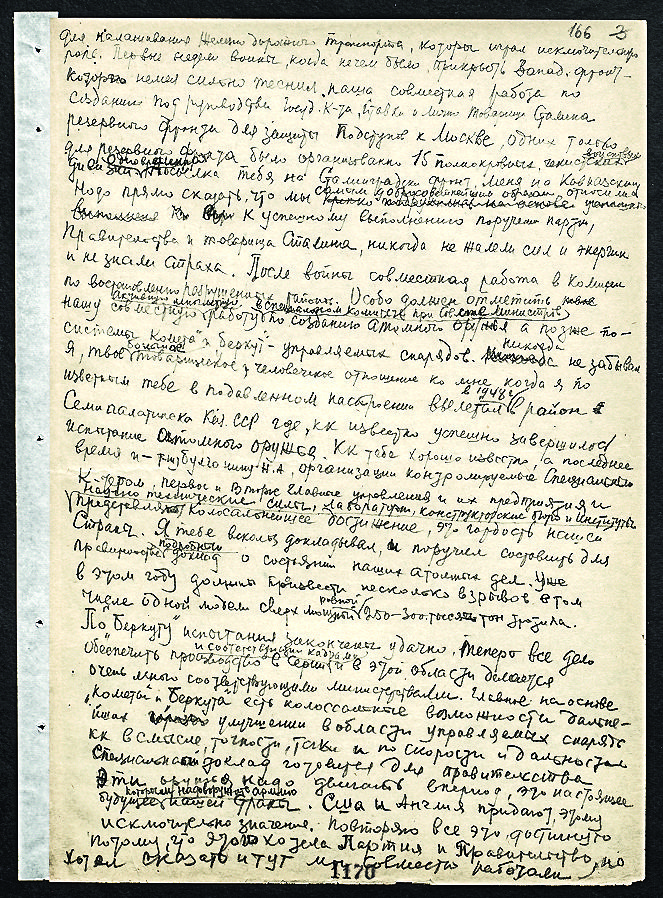 166 3
для налаживания железнодорожного транспорта, которы играл исключительную
роль. Первые недели войны, когда нечем было прикрыть Запад. фронт –
которо немец сильно теснил, наша совместная работа по
созданию под руководства Госуд. К-та, Ставки и лично товарища Сталина
резервного фронта для защиты подступов к Москве, одних только
для резервного фронта было организовано 15 полнокровных, чекистских войсковых
дивизий. Одновременно посылка тебя на Сталинградски фронт, меня на Кавказский
Надо прямо сказать, что мы самым добросовестнейшим образом, относились
к успешному выполнению поручени партии,
Правительства и товарища Сталина, никогда не жалели сил и энергии
и не знали страха. После войны совместная работа в комисии
по востановлению разрушенных районов. Особо должен отметить
нашу совместную активную многолетнюю работу в Специальном комитете при Совете Министров
по созданию атомного оружия а позже по–
системы "Комета" и "Беркут" – управляемых снарядов. никогда не забывал
я, твое большое товарищеское и человеческое отношение ко мне, когда я по
известным тебе в подавленном настроении вылетал в 1948 г в район
Семипалатинска Каз. ССР где, кк известно успешно завершилось
испытание Атомного оружия. Кк тебе хорошо известно, а последнее
время и т-щу Булганину Н.А. организации контролируемые Специальным
К-тетом, Первое и Второе Главные управления и их предприятия и
научно технические силы, лаборатории, конструкторские бюро и институты
представляют колосальнейшее достижение, это гордость нашей
страны. Я тебе вскользь докладывал, и поручил составить для
правительства подробный доклад о состоянии наших атомных дел. Уже
в этом году должны произвести несколько взрывов в том
числе одной модели сверх мощной равной 250–300 тысяч тон тротила.
По "Беркуту" испытания закончены удачно. Теперь все дело
обеспечить производство в серии и соответствующими кадрами и в этой области делается
очень много соответствующими министерствами. Главное на основе
"Кометы" и "Беркута" есть колоссальные возможности дальне–
йшах улучшении в области управляемых снарядв
кк в смысле, точности, таки и по скорости и дальности
Специальный доклад готовится для правительства
Эти оружия надо двигать вперед, это настоящее
будущее которым надо вооружать армию нашей страны. США и Англия придают, этому
исключительно значение. Повторяю все это достигнуто
потому, что этого хотела Партия и Правительство, но
хотел сказать и тут мы совместно работали
1170